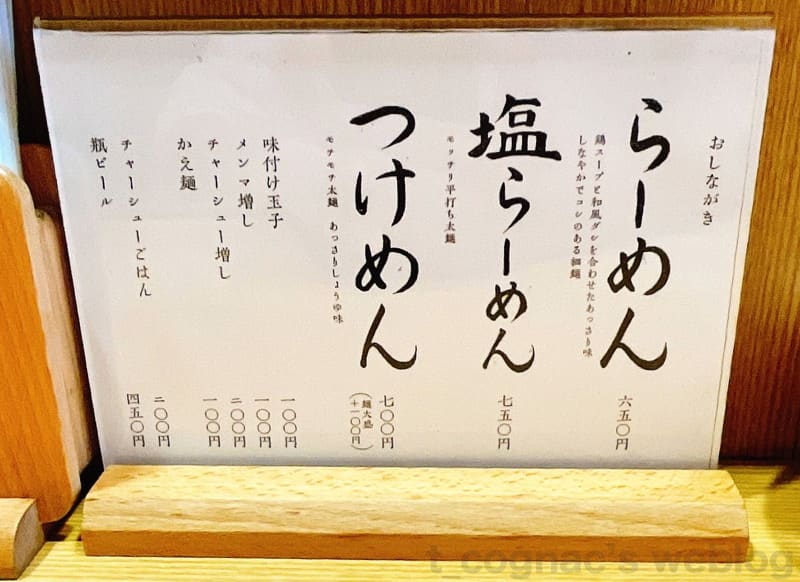 おしながき
らーめん 六五〇円
鶏スープと和風ダシを合わせたあっさり味
しなやかでコシのある細麺
塩らーめん 七五〇円
モッチリ平打ち太麺
つけめん 七〇〇円
(麺大盛
+一〇〇円)
モチモチ太麺 あっさりしょうゆ味
味付け玉子 一〇〇円
メンマ増し 一〇〇円
チャーシュー増し 二〇〇円
かえ麺 一〇〇円
チャーシューごはん 二〇〇円
瓶ビール 四五〇円
t_cognac's weblog